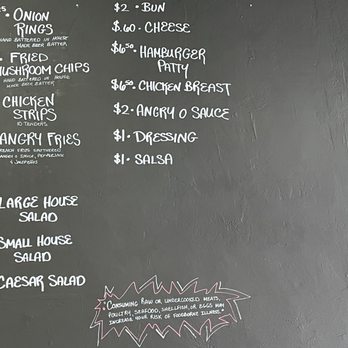 • ONION
RINGS
HAND BATTERED IN HOUSE
MADE BEER BATTER
• FRIED
MUSHROOM CHIPS
HAND BATTERED IN HOUSE
MADE BEER BATTER
CHICKEN
STRIPS
10 TENDERS
ANGRY FRIES
FRENCH FRIES SMOTHERED
ANGRY O SAUCE, PEPPERJACK
& JALAPEÑOS
LARGE HOUSE
SALAD
SMALL HOUSE
SALAD
CAESAR SALAD
$2 • BUN
$.60 • CHEESE
$6.50 • HAMBURGER
PATTY
$6.50 • CHICKEN BREAST
$2 • ANGRY O SAUCE
$1 • DRESSING
$1 • SALSA
"CONSUMING RAW OR UNDERCOOKED MEATS,
POULTRY, SEAFOOD, SHELLFISH, OR EGGS MAY
INCREASE YOUR RISK OF FOODBORNE ILLNESS."